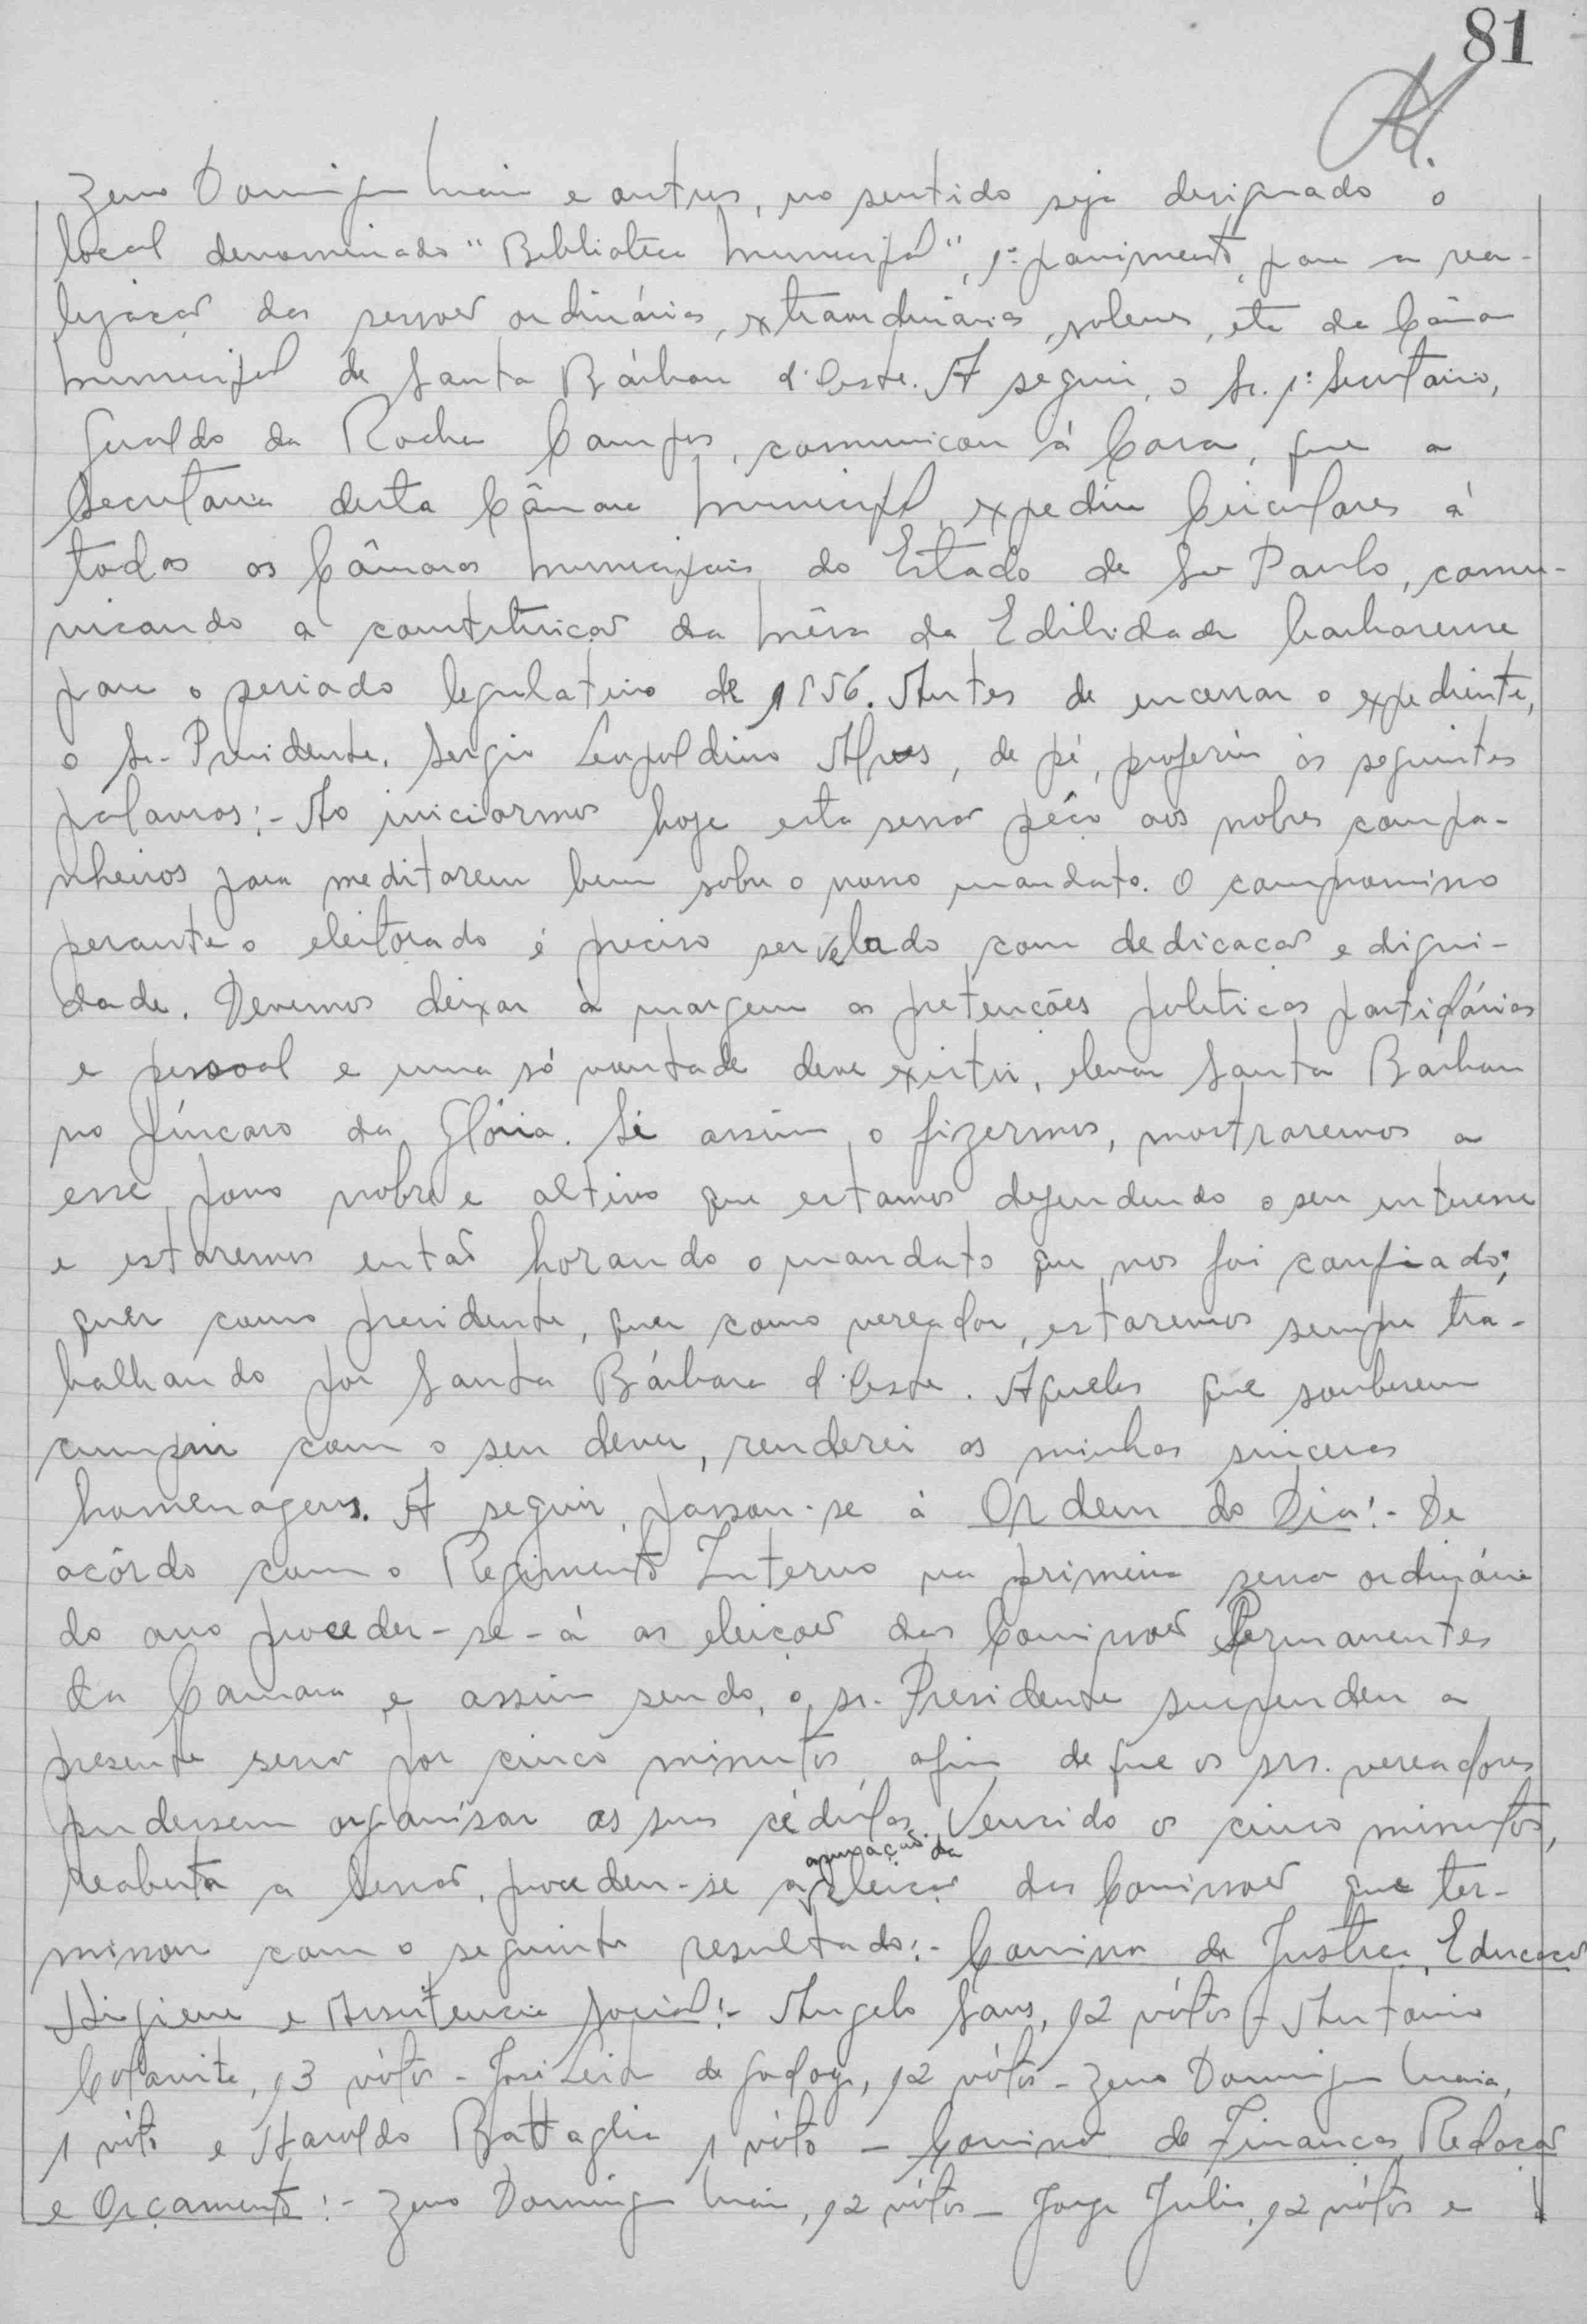 81
Zeno Domingues Maia e outros, no sentido seja designado o
local denominado "Biblioteca Municipal", 1º pavimento, para a rea-
lização das sessões ordinárias, extraordinárias, solenes, etc da Câmara
Municipal de Santa Bárbara d'Oeste. A seguir, o Sr. 1º Secretário,
Geraldo da Rocha Campos, comunicou à Casa, que a
Secretaria desta Câmara Municipal, expediu Circulares á
todas as Câmaras Municipais do Estado de São Paulo, comu-
nicando a constituição da Mêsa da Edilidade barbarense
para o periodo legislativo de 1956. Antes de encerrar o expediente,
o Sr. Presidente, Sergio Leopoldino Alves, de pé, proferiu as seguintes
palavras:- Ao iniciarmos hoje esta sessão péço aos nobres compa-
nheiros para meditarem bem sobre o nosso mandato. O compromisso
perante o eleitorado é preciso ser velado com dedicação e digni-
dade. Devemos deixar à margem as pretenções politicas partidárias
e pessoal e uma só vontade deve existir, elevar Santa Barbara
no píncaro da Glória. Si assim o fizermos, mostraremos a
esse povo nobre e altivo que estamos defendendo o seu interesse
e estaremos então horando o mandato que nos foi confiado;
quer como presidente, quer como vereador, estaremos sempre tra-
balhando por Santa Bárbara d'Oeste. Aqueles que souberem
cumprir com o seu dever, renderei as minhas sinceras
homenagens. A seguir, passou-se à Ordem do Dia:- De
acôrdo com o Regimento Interno na primeira sessão ordinária
do ano proceder-se-á as eleições das Comissões Permanentes
da Camara e assim sendo, o sr. Presidente suspendeu a
presente sessão por cinco minutos, afim de que os srs. vereadores
pudessem organisar as suas cédulas. Vencido os cinco minutos,
reaberta a Sessão, procedeu-se a apuração da eleição das Comissões que ter-
minou com o seguinte resultado:- Comissão de Justiça, Educação
Higiene e Assistencia Social:- Angelo Sans, 12 vótos - Antonio
13 vótos - José Leite de Godoy, 12 vótos - Zeno Domingues Maia,
1 vóto e Haroldo Battaglia 1 vóto - Comissão de Finanças, Redação
e Orçamento:- Zeno Domingues Maia, 12 vótos - Jorge Julio, 12 vótos e